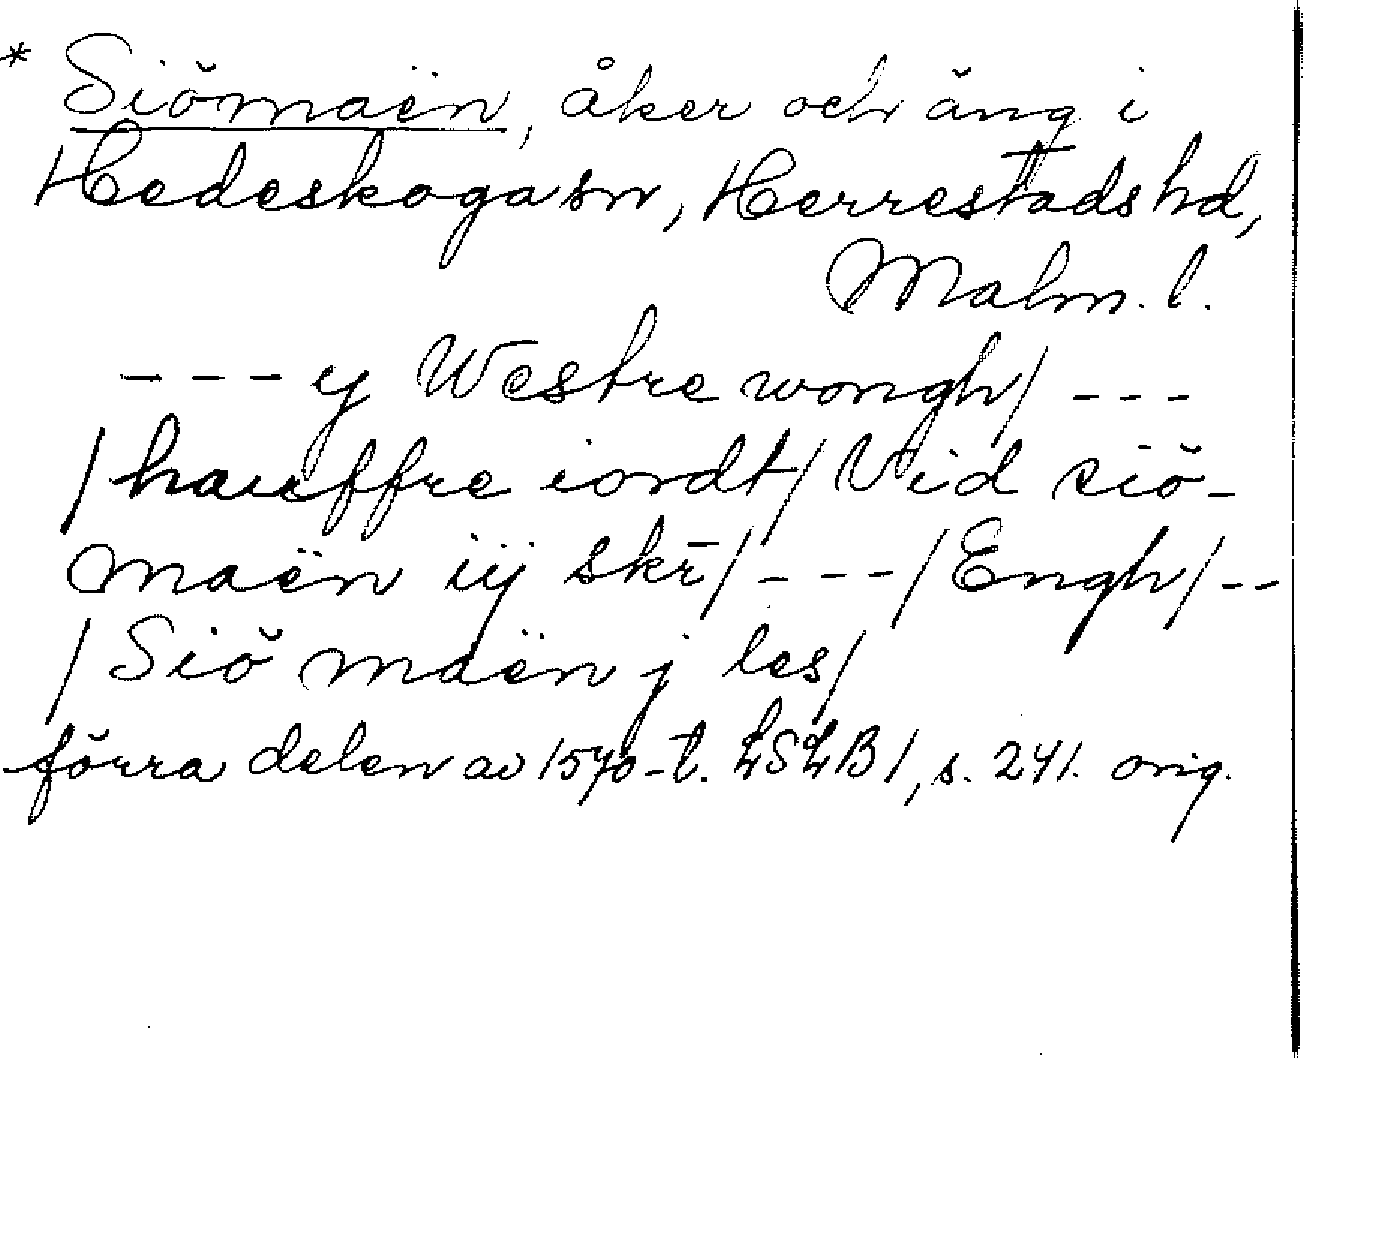 * Siömaën, åker och äng i
Hedeskoga sn, Herrestads hd,
Malm. l.
- - - y Westre wongh/ - - -
/ haueffre iordt/ Vid siö-
maën iij skr̄/ - - - / Engh/ - -
/ Siö maën j les/
förra delen av 1570-t. LSLB 1, s. 241. orig.